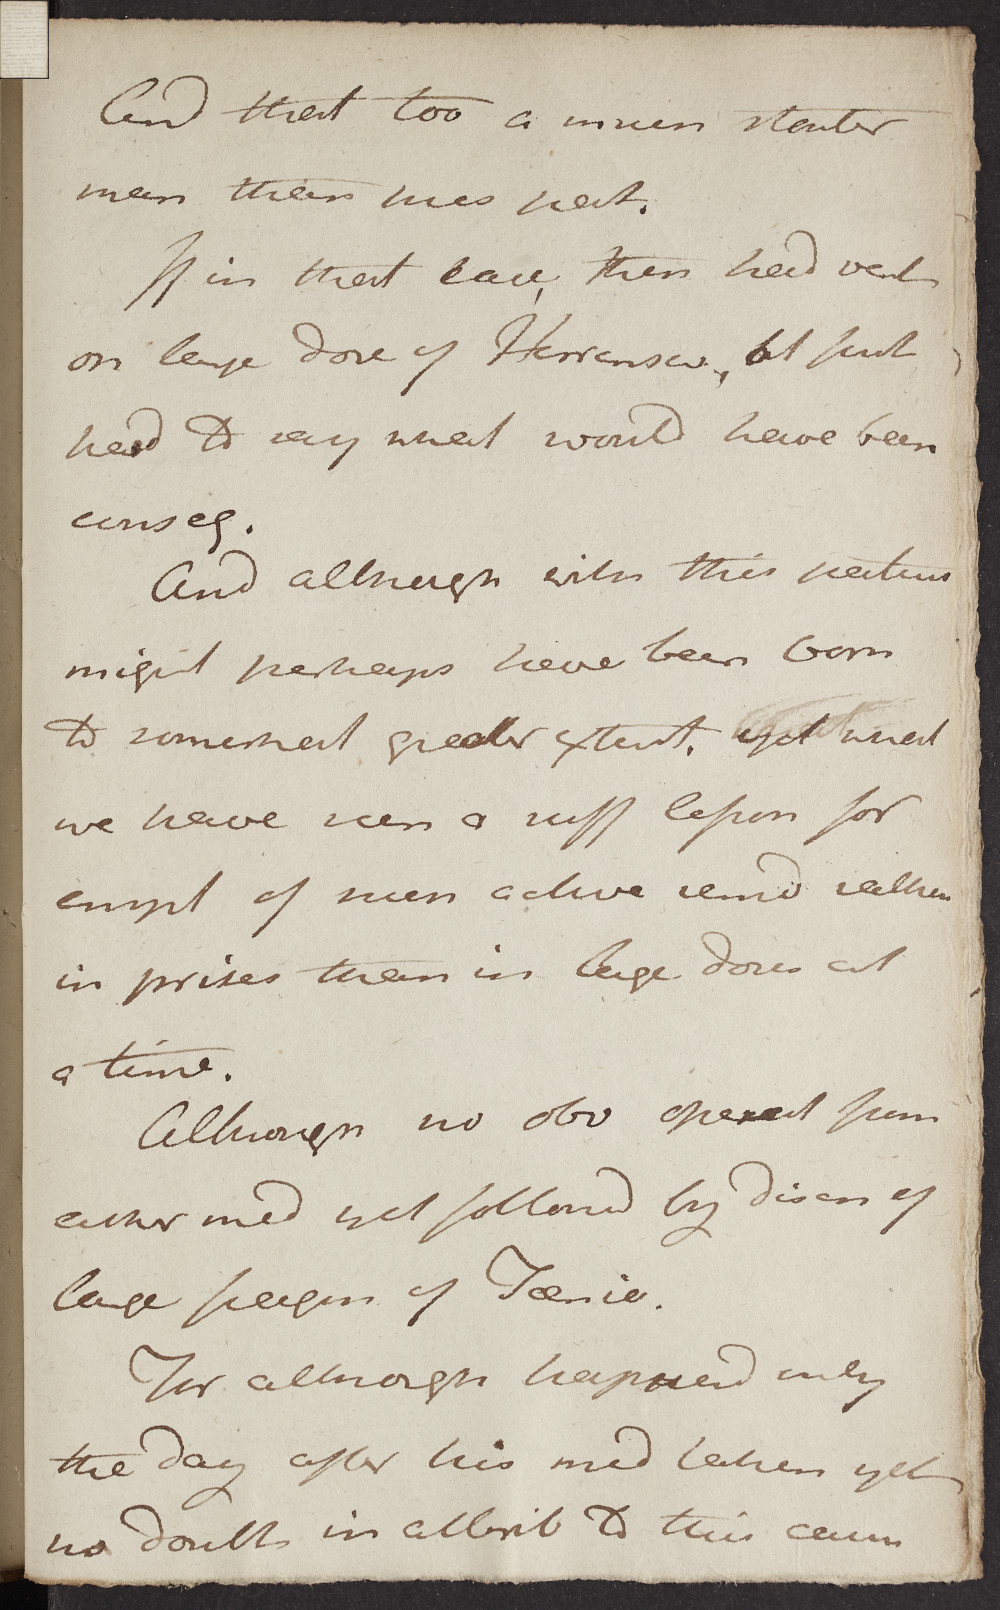 And that too a much stouter
man than this pat.
If in that case, then had vent
on large dose of Herrensw, but just
hard to say what would have been
conseq.
And although with this patient
might perhaps have been born
to somewhat greater extent. yet what
we have seen a suff lesson for
empt of such active remd rather
in prises than in large doses at
a time.
Although no obv operat from
either med yet followd by disch of
large fragm of Tænia.
For although happned only
the day after his med taken yet
no doubt in attrib to this cause